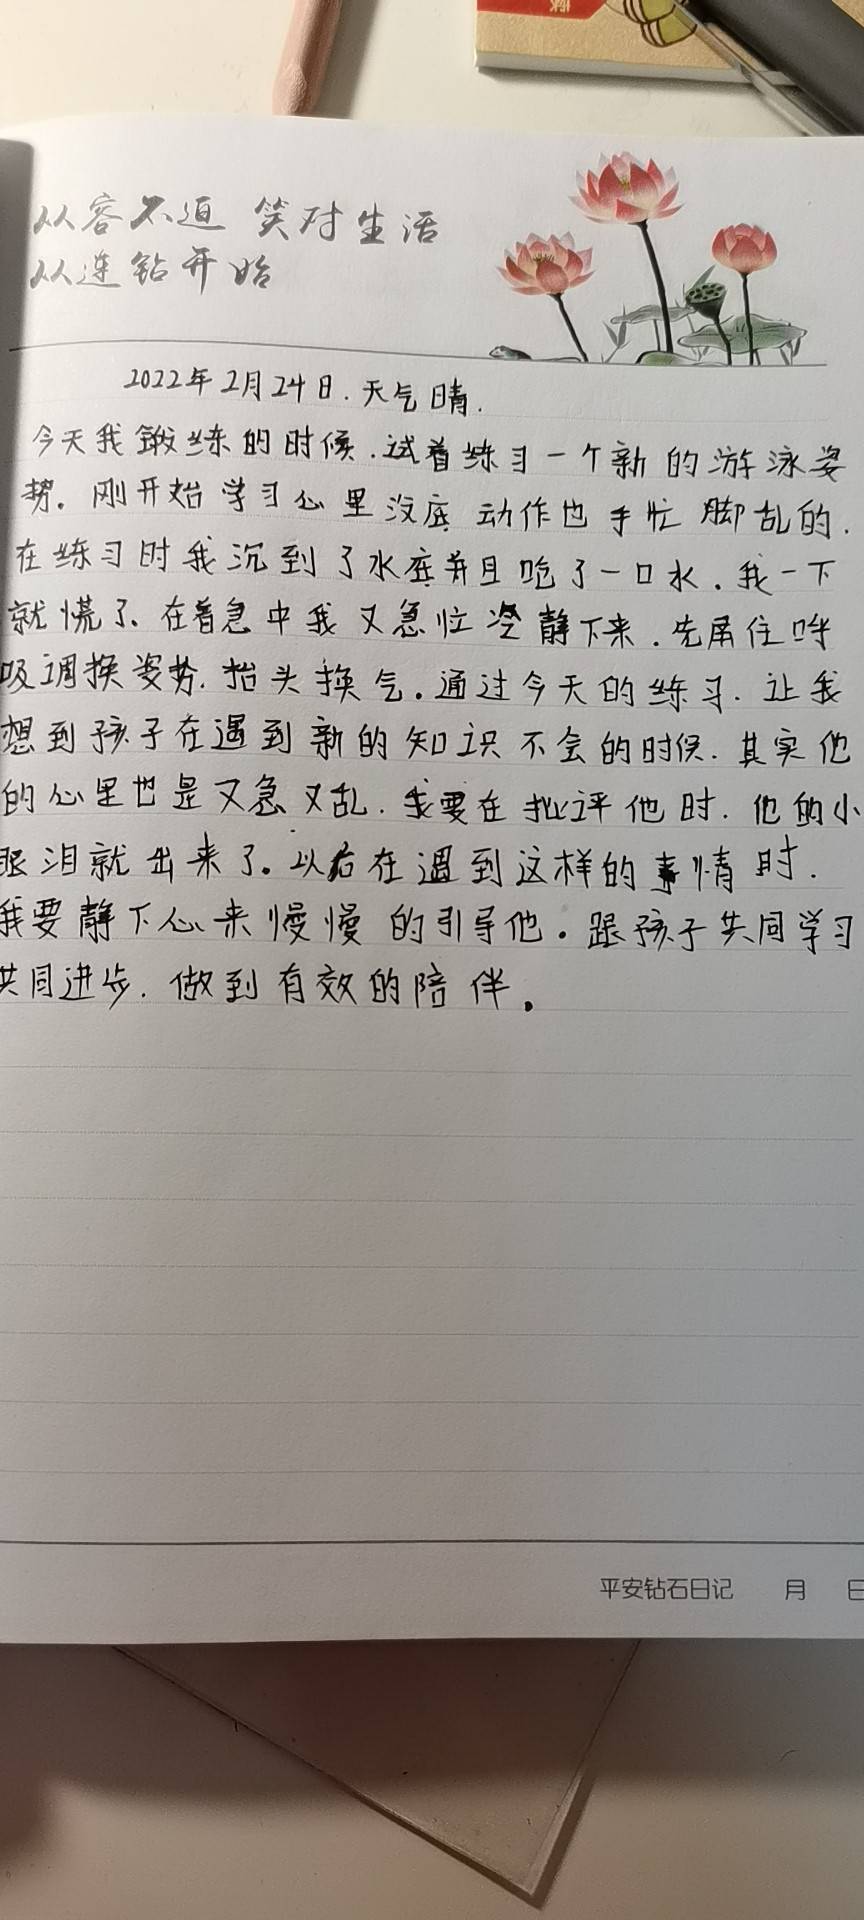 从容不迫 笑对生活
从连钻开始
2022年2月24日.天气晴.
今天我锻炼的时候.试着练习一个新的游泳姿
势。刚开始学习心里没底 动作也手忙脚乱的.
在练习时我沉到了水底并且呛了一口水.我一下
就慌了、在着急中我又急忙冷静下来.先屏住呼
吸调换姿势.抬头换气。通过今天的练习.让我
想到孩子在遇到新的知识不会的时候.其实他
的心里也是又急又乱.我要在批评他时.他的小
眼泪就出来了。以后在遇到这样的事情时.
我要静下心来慢慢的引导他。跟孩子共同学习
共同进步.做到有效的陪伴。
平安钻石日记 月 日